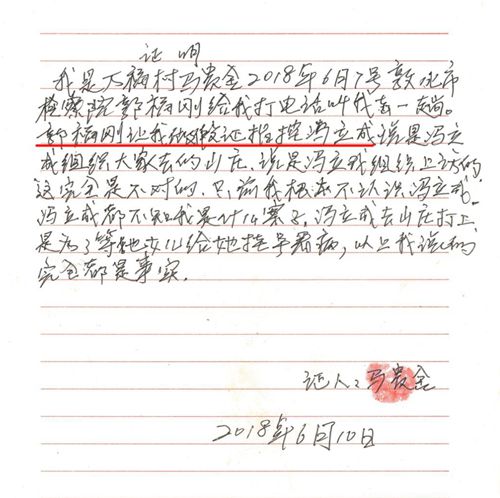 证明
我是大桥村马贵金2018年6月7号敦化市
检察院郭福刚给我打电话叫我去一趟。
郭福刚让我做假证指控冯立成说是冯立
成组织大家去的山庄。说是冯立成组织上访的
这完全是不对的。以前我根本不认识冯立成。
冯立成都不知我是什么寨子。冯立成去山庄打上
是为了等她女儿给她挂号看病,以上我说的
完全都是事实。
证人:马贵金
2018年6月10日